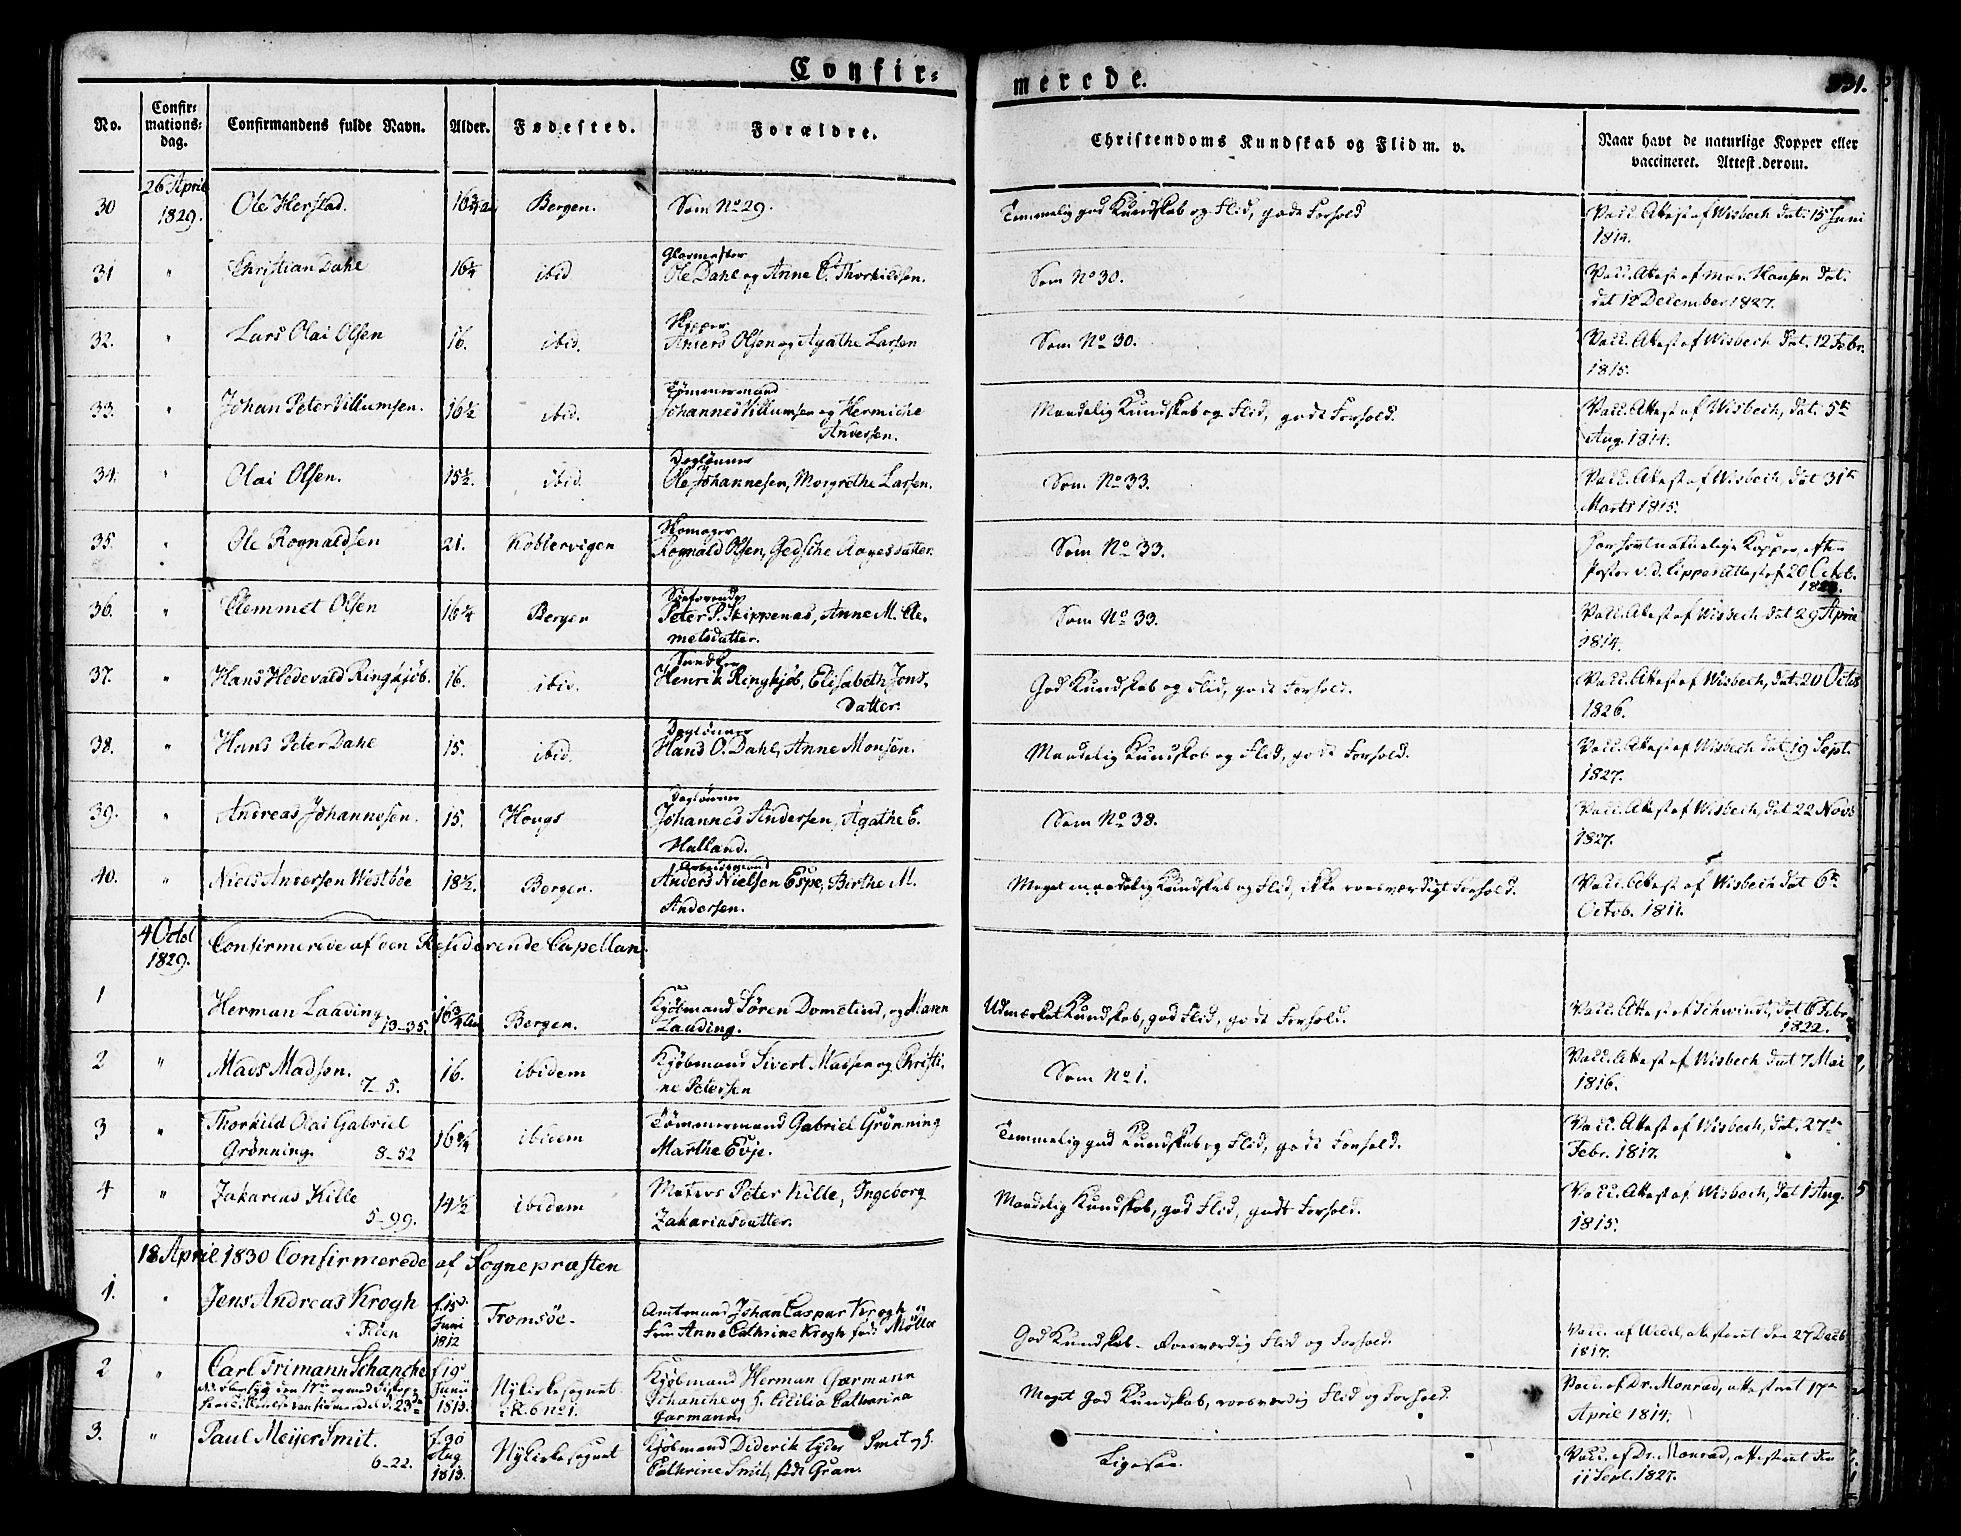 Confir=
merede.
331.
No.
Confir=
mations=
dag.
Confirmandens fulde Navn.
Alder.
Fødested.
Forældre.
Christendoms Kundskab og Flid m. v.
Naar havt de naturlige Kopper eller
vaccineret. Attest derom.
26 April
1829.
30 Ole Herstad. 16 3/4 Bergen. Som No 29. Temmelig god Kundskab og Flid, gode Forhold Vacc. Attest af Wisbech dat. 15 Juni
1814.
31 " Christian Dahl 16 1/4 ibid Glarmester
Ole Dahl og Anne C. Thorkildsen. Som No 30. Vacc. Attest af Hansen dat.
12 December 1827.
32. " Lars Olai Olsen 16. ibid. Skipper
Anders Olsen og Agathe Larsen Som No 30. Vacc. Attest af Wisbech dat. 12 Febr.
1815.
33. " Johan Peter Villumsen. 16 1/2 ibid. Tømmermand
Johannes Villumsen og Hermiche
Andersen. Maadelig Kundskab og Flid, godt Forhold. Vacc. Attest af Wisbech, dat. 5te
Aug. 1814.
34. " Olai Olsen. 15 1/2. ibid. Daglønner
Ole Johannesen, Margrethe Larsen. Som No 33. Vacc. Attest af Wisbech, dat 31te
Marts 1815.
35. " Ole Rognaldsen 21. Kobbervigen Skomager
Rognald Olsen, Gedsche Aagesdatter. Som No 33. har havt naturlige Kopper, efter
Pastor v. d. Lippes Attest af 20 Octb.
36. " Clemmet Olsen 16 1/4 Bergen Søefarende
Peter P. Skippenes, Anne M. Cle=
metsdatter. Som No 33. Vacc. Attest af Wisbech dat 29 April
1814.
37. " Hans Hedevald Ringkjøb. 16. ibid.
Henrik Ringkjøb, Elisabeth Jons=
datter. God Kundskab og Flid, godt Forhold. Vacc. Attest af Wisbech, dat. 20 Octb
1826.
38. " Hans Peter Dahl 15. ibid. Daglønner
Hans O. Dahl, Anne Monsen. Maadelig Kundskab og Flid, godt Forhold. Vacc. Attest af Wisbech dat 19 Sept.
1827.
39. " Andreas Johannesen. 15. Hougs Daglønner
Johannes Andersen, Agathe E.
Halland. Som No 38. Vacc. Attest af Wisbech, dat 22 Novb
1827.
40. " Niels Andersen Westbøe 18 1/2. Bergen. Arbeidsmand
Anders Nielsen Espe, Birthe M.
Andersen. Meget maadelig Kundskab og Flid, ikke roesværdigt Forhold. Vacc. Attest af Wisbech dat 6te
Octob. 1811.
4 Octob
1829. Confirmerede af den Residerende Capellan.
1 Herman Laading 13-35. 16 3/4 Bergen. Kjøbmand Søren Dometius, og Maren
Laading. Udmærket Kundskab, god Flid, godt Forhold. Vacc. Attest af Schwindt, dat 6 Febr
1822.
2 " Mads Madsen. 7-5. 16. ibidem Kjøbmand Sivert Madsen og Christi=
ne Petersen Som No 1. Vacc. Attest af Wisbech dat 7 Mai
1816.
3 " Thorkild Olai Gabriel
Grønning. 8-52 16 3/4 ibidem Tømmermand Gabriel Grønning
Marthe Evje. Temmelig god Kundskab og Flid, godt Forhold. Vacc. Attest af Wisbech, dat. 27de
Febr. 1817.
4 " Zakarias Kille 5-99. 14 1/2 ibidem Matros Peter Kille, Ingeborg
Zakariasdatter. Maadelig Kundskab, god Flid, godt Forhold. Vacc. Attest af Wisbech, dat 1 Aug.
1815.
18 April 1830 Confirmerede af Sognepræsten
1. " Jens Andreas Krogh
i Tiden f. 15de
Juni
1812 Tromsøe Amtmand Johan Caspar Krogh
Anne Cathrine Krogh født Møller God Kundskab - Roesværdig Flid og Forhold. Vacc. af Wedel, attesteret den 27 Decb
1817.
2 " Carl Frimann Schanche f. 19
Junii
1813. Nykirkesognet
K. 6 No 1. Kjøbmand Herman Garmann
Schanche og H. Cicilia Catharina
Garmann, Meget god Kundskab, roesværdig Flid og Forhold. Vacc. af Dr. Monrad, attesteret 17de
April 1814.
3. " Paul Meijer Smit. 6-22. f. 30
Aug
1813. Nykirkesognet Kjøbmand Diderik Lyder Smit og H.
Cathrine Smit, født Gran. Ligesaa. Vacc. af Dr. Monrad, attesteret den
11 Sept. 1827.